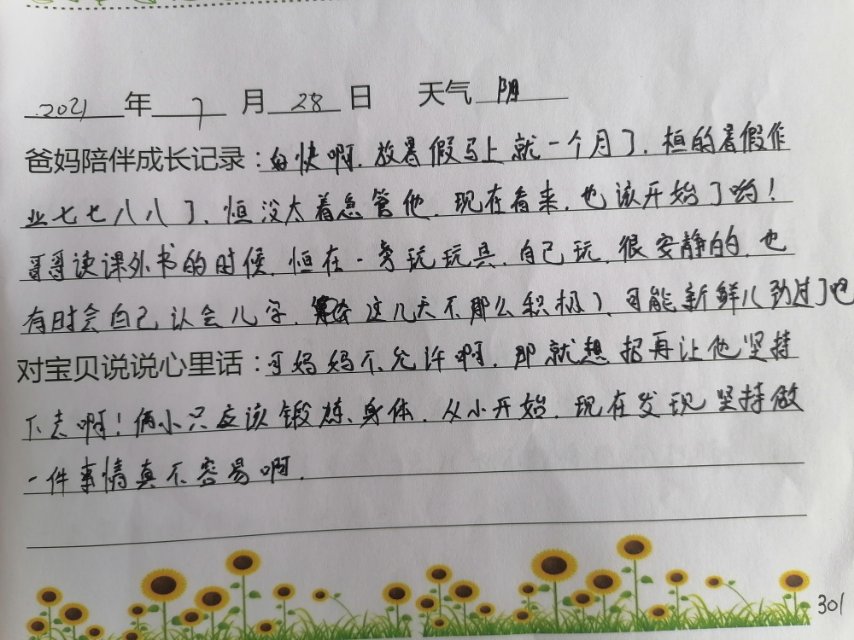 2021 年 7 月 28 日 天气 阴
爸妈陪伴成长记录：好快啊，放暑假马上就一个月了，桓的暑假作
业七七八八了，恒没太着急管他，现在看来，也该开始了哟！
哥哥读课外书的时候，恒在一旁玩玩具，自己玩，很安静的，也
有时会自己认会儿字，这几天不那么积极），可能新鲜儿劲过了吧
对宝贝说说心里话：可妈妈不允许啊，那就想招再让他坚持
下去啊！俩小只应该锻炼身体，从小开始，现在发现坚持做
一件事情真不容易啊。
301